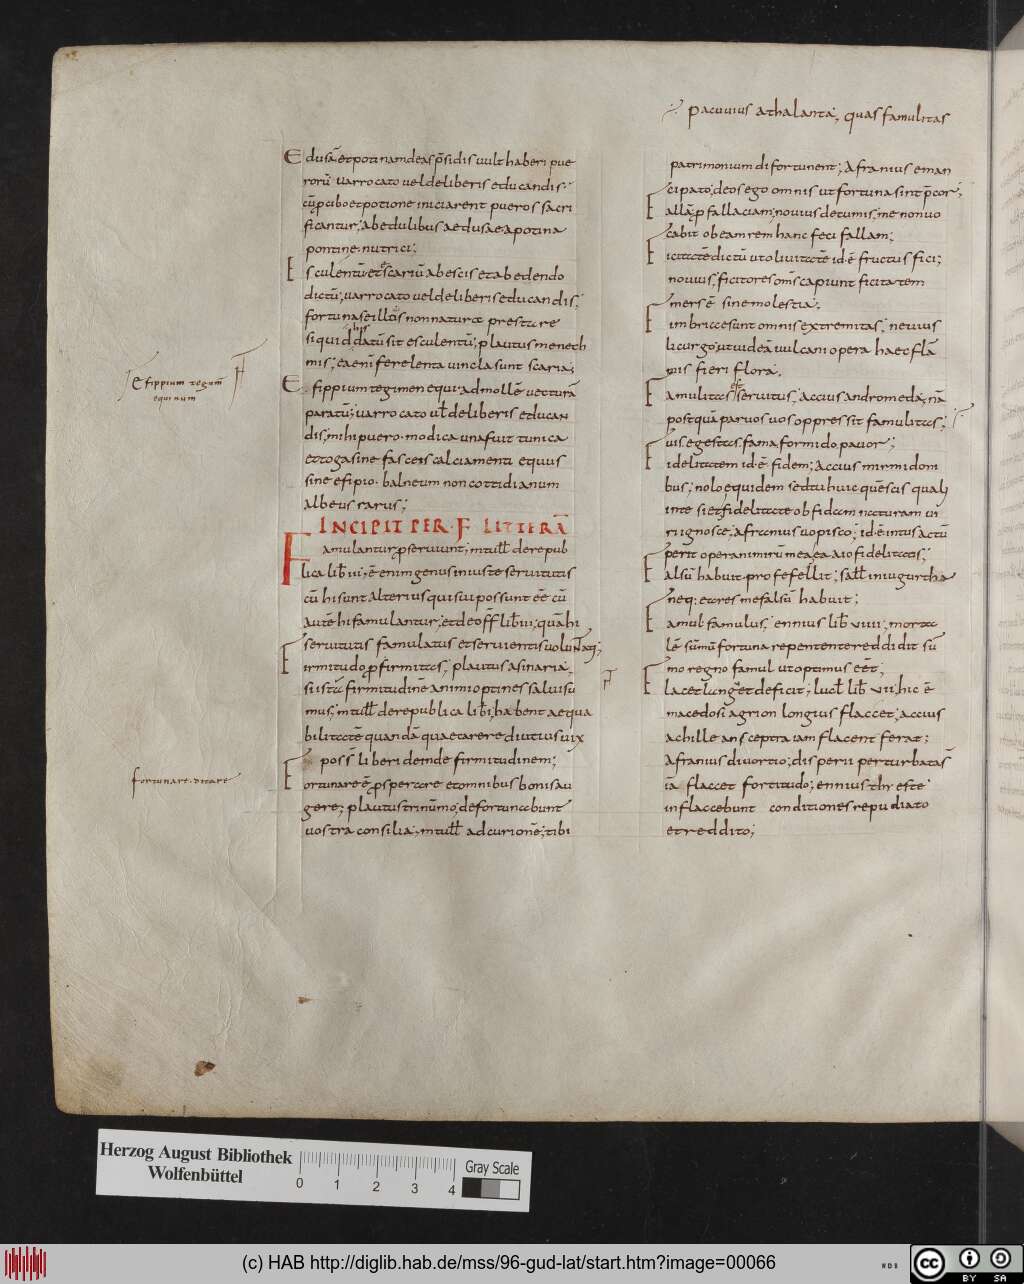 pacuuius athalanta; quas famulitas
Edusā et potinam deas p̄sidis uult haberi pue
rorū uarro cato uel de liberis educandis;
cū p cibo et potione iniciarent pueros sacri
ficantur; ab edulibus aedusae a potina
pontine nutrici;
Esculentū et escariū ab escis et ab edendo
dictū; uarro cato uel de liberis educandis;
fortunas e illos non natura prestare
siquid datū sit esculentū; plautus menech
mis; ea enī fere lenta uincla sunt scaria;
efippium tegum
equinum
Efippium tegimen equi ad mollē uecturā
paratū; uarro cato ut̄ de liberis educan
dis; mihi puero modica una fuit tunica
et toga sine fasceis calciamenta equus
sine efipio balneum non cottidianum
albeus rarus;
INCIPIT PER F LITTERĀ
Famulantur p seruiunt; m tull̄ de repub
lica lib̄ iii; ē enim genus iniuste seruitutis
cū hi sunt alterius qui sui possunt eē cū
autē hi famulantur; et de off̄ lib̄ iii; quā hi
seruitutis famulatus et seruientis uoluntati;
Firmitudo p firmitas; plautus asinaria;
si istā firmitudinē animi optines salui su
mus; m tull̄ de republica lib̄ i; habent aequa
bilitatē quandā qua carere diutius uix
poss̄ liberi deinde firmitudinem;
fortunare. ditare
Fortunare ē prosperare et omnibus bonis au
gere; plautus trinūmo; defortunabunt
uostra consilia; m tull̄ ad curionē; tibi
patrimonium di fortunent; Afranius eman
cipato; deos ego omnis ut fortunas int p̄cor;
Fallā p fallaciam; nouius decumis; me non uo
cabit ob eam rem hanc feci fallam;
Ficitatē dictū ut oliuitatē id ē fructus fici;
nouius; ficitores om̄s capiunt ficitatem
mers ē sine molestia;
Fimbriae sunt omnis extremitas; neuius
licurgo; ut uideā uulcani opera haec flā
mis fieri flora;
Famulitas ē seruitus; Accius andromeda; nā
postquā paruos uos oppressit famulitas;
uis egestas fama formido pauor;
Fidelitatem id ē fidem; Accius mirmidoni
bus; nolo equidem sed tu huic quē scis quali
in te siet fidelitate ob fidam naturam ui
ri ignosce; afranius uopisco; id ē intus actū
perit operā nimirū mea ea aio fidelitas;
Falsū habuit pro fefellit; sall̄ in iugurtha
neq; ea res me falsū habuit;
Famul famulus; ennius lib̄ viiii; morta
lē sūmū fortuna repente reddidit sū
mo regno famul ut optimus eēt;
Flacet languet deficit; lucl̄ lib̄ vii; hic ē
macedo si agrion longius flaccet; accius
achille an sceptra iam flacent ferat;
Afranius diuortio; disperii perturbatas̄
iā flaccet fortitudo; ennius thyeste
in flaccebunt conditiones repudiato
et reddito;
Herzog August Bibliothek
Wolfenbüttel
0 1 2 3 4
Gray Scale
(c) HAB http://diglib.hab.de/mss/96-gud-lat/start.htm?image=00066
WDB
cc BY SA